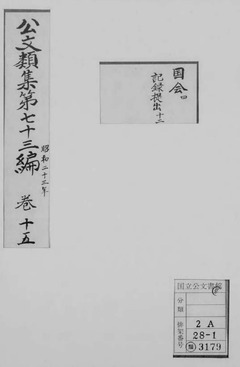 公文類集第七十三編 昭和二十三年 巻十五
国会四
記録提出十二
国立公文書館
分類
排架番号
2A
28-1
類3179